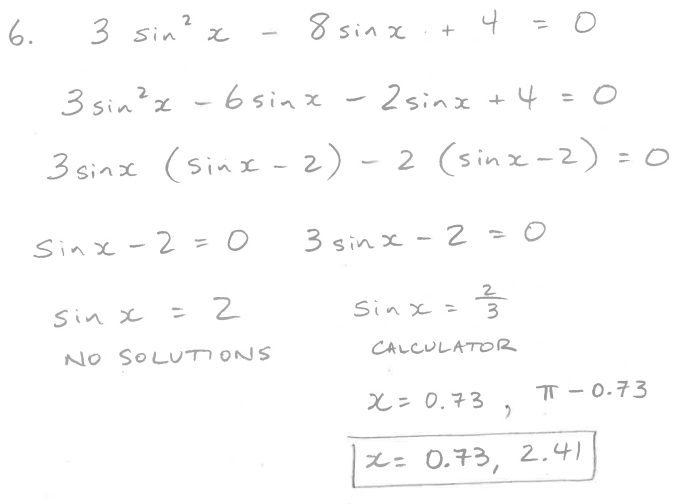 6. 3 sin² x - 8 sin x + 4 = 0
3 sin² x - 6 sin x - 2 sin x + 4 = 0
3 sin x (sin x - 2) - 2 (sin x - 2) = 0
sin x - 2 = 0 3 sin x - 2 = 0
sin x = 2 sin x = 2/3
NO SOLUTIONS CALCULATOR
x = 0.73 , π - 0.73
x = 0.73, 2.41